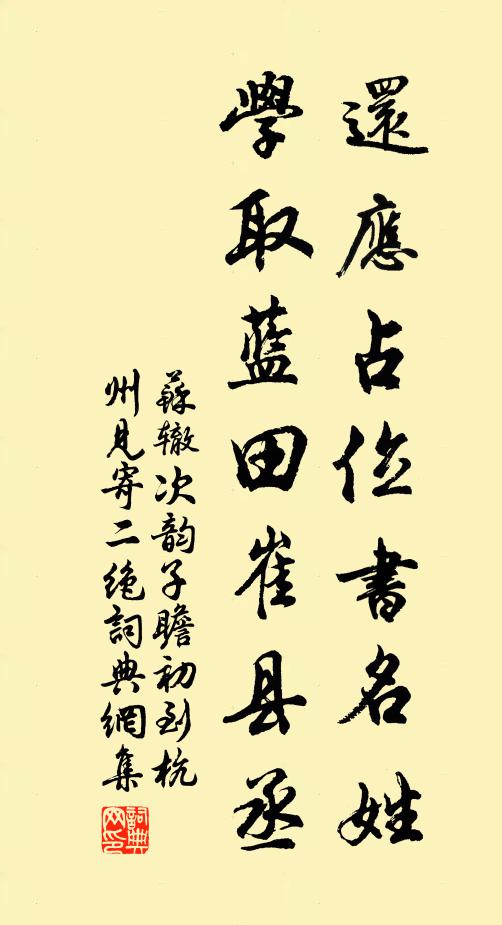 還應占位書名姓
學取藍田崔县丞
蘇辙次韵子瞻初到杭
州見寄二絶詞典網集
詞典
网印